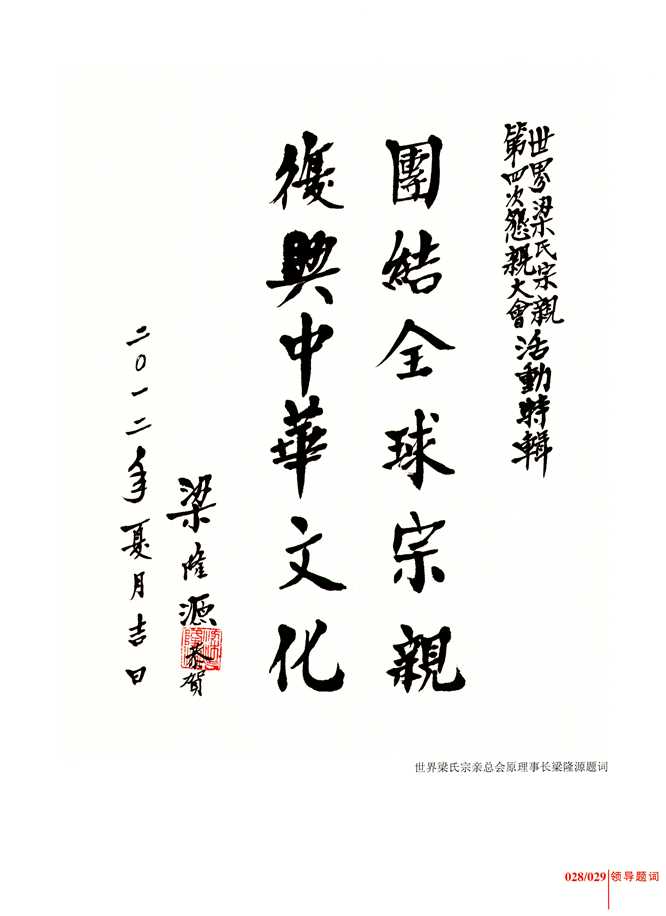 世界梁氏宗親
第四次懇親大會活動特輯
團結全球宗親
復興中華文化
梁隆源
恭賀
二〇一二年夏月吉日
世界梁氏宗亲总会原理事长梁隆源题词
028/029 领导题词